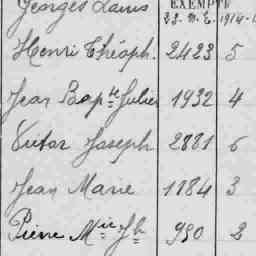 Georges Louis
EXEMPTÉ
22. N. E. 1914-1
Henri Théoph. 2423 5
Jean Bapte Julien 1932 4
Victor Joseph 2881 6
Jean Marie 1184 3
Pierre Mie Jh 950 2